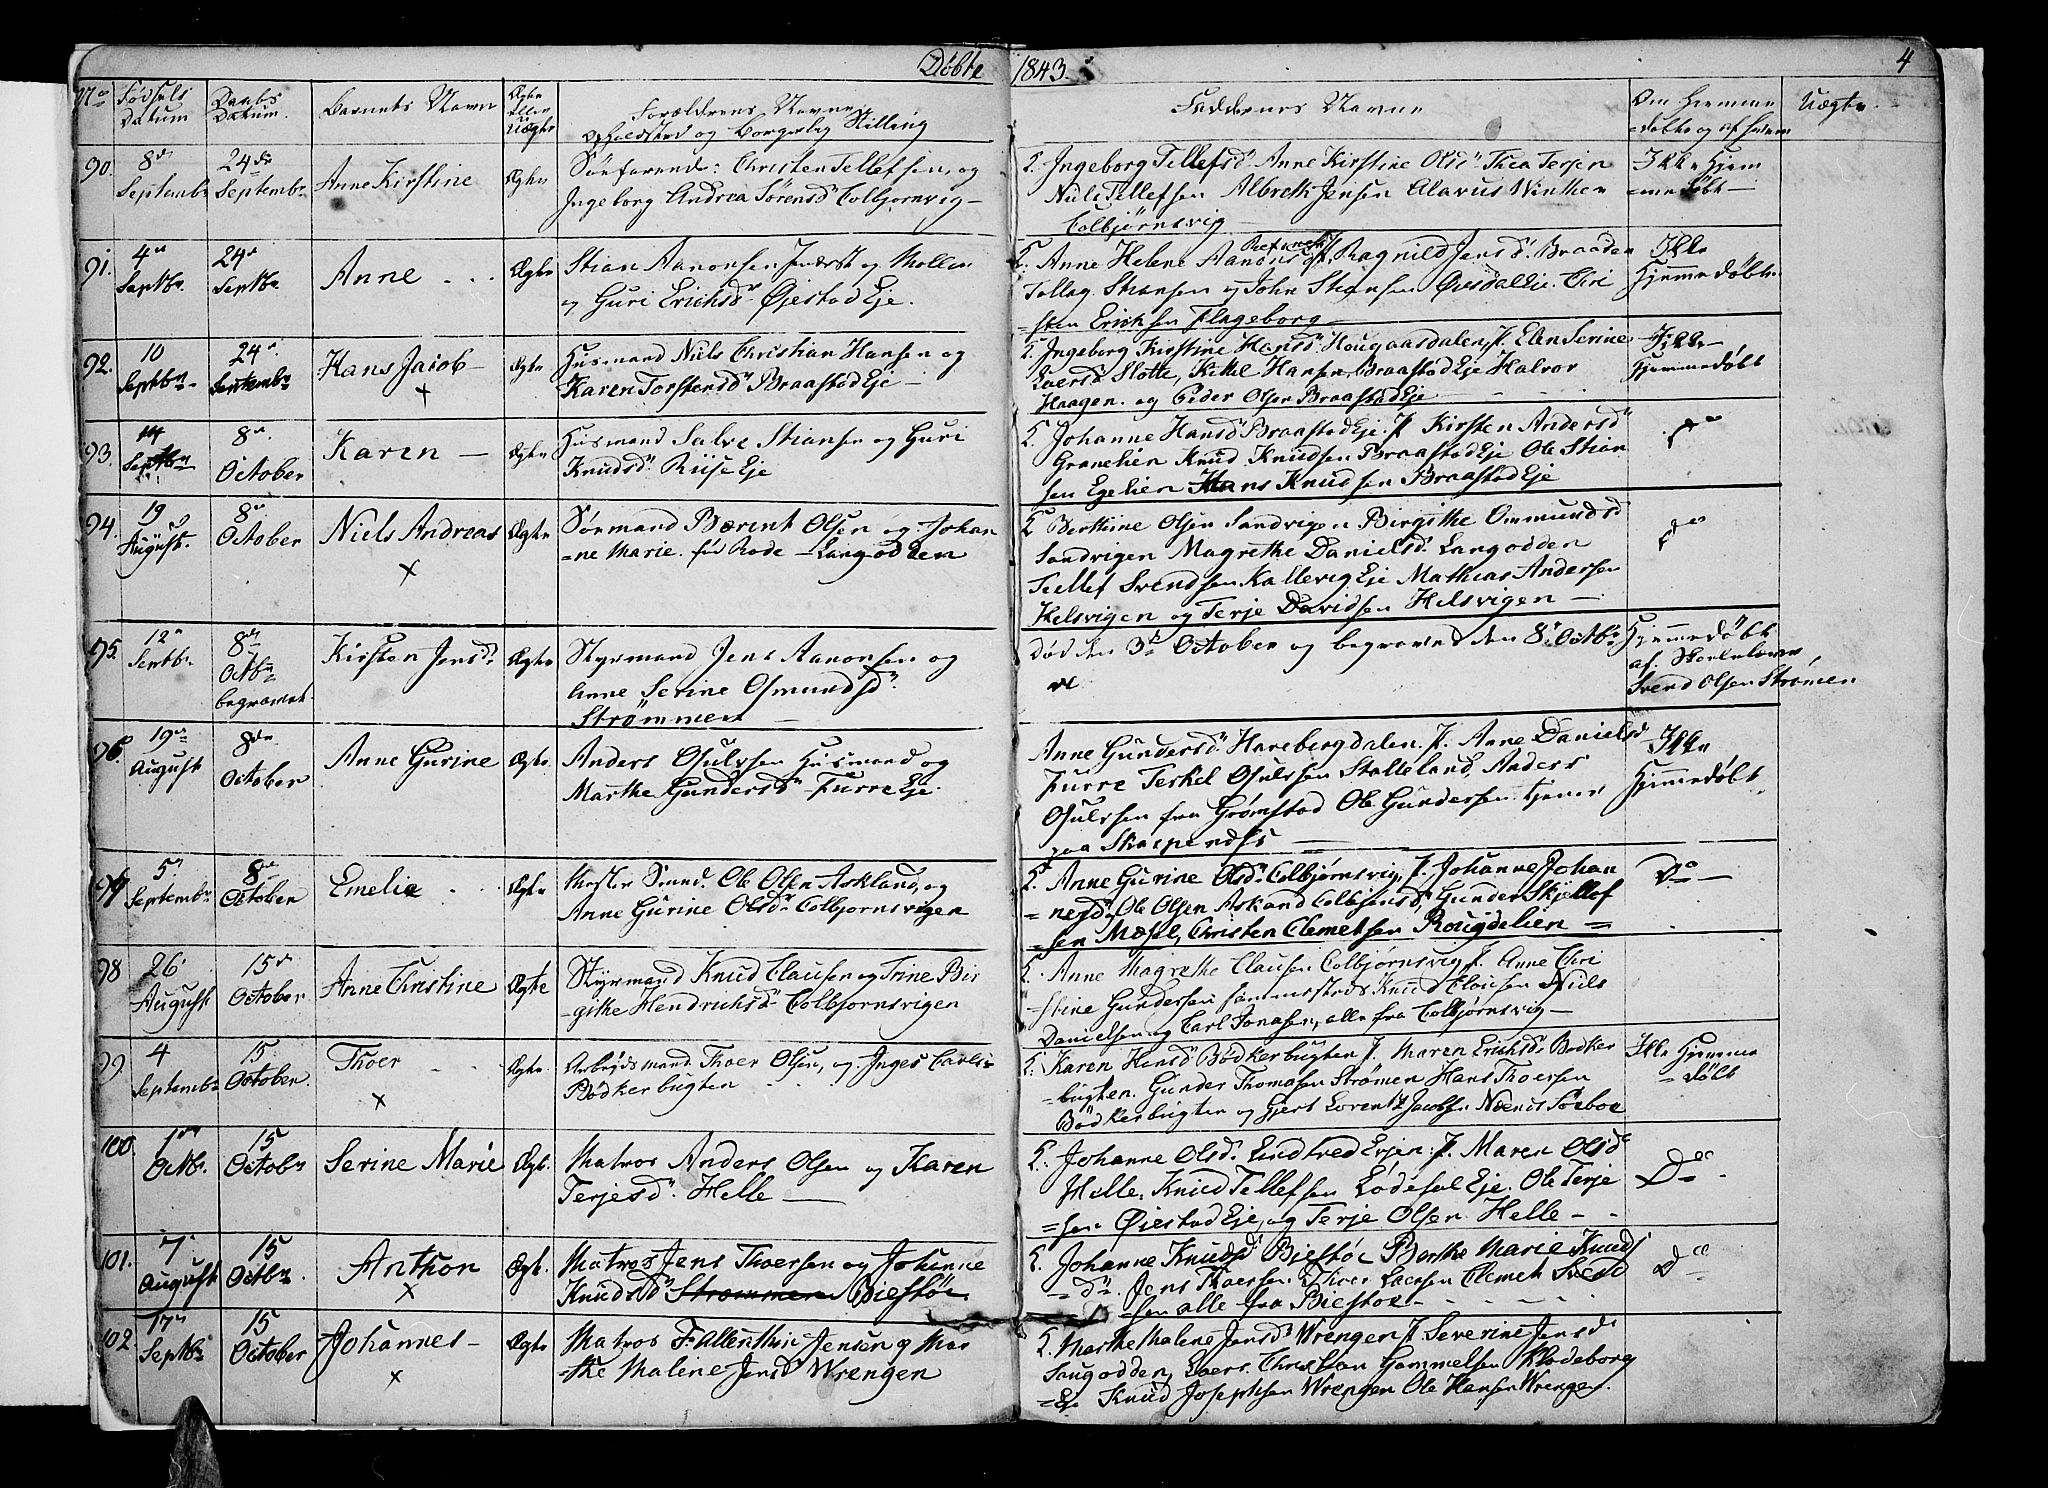 Døbte 1843. 4
No Fødsels Datum Daabs Datum. Barnets Navn Ægte eller Uægte Forældrenes Navne Opholdsted og Borgerlig Stilling Faddernes Navne Om Hjemme Uægte
=døbte og af hvem
90. 8de Septembr 24de Septembr Anne Kirstine Ægte Søefarende: Christen Tellefsen, og
Ingeborg Andrea Sørensd Colbjørnsvig
Ingeborg Tellefsd Anne Kirstine Olsd Thea Terjen
Nils Tellefsen Albreth Jensen Alavus Winther
Colbjørnsvig
Ikke Hjem
=me døbt
91. 4de Septbr 24d Septbr Anne Ægte Stian Aanonsen
og Guri Erichsd Øiestad Eje.
Anne Helene Aanonsd Ragnild Jensd Braaden
Tellag Stiansen og John Stiansen Øvisdal Eje. Chri
=sten Ericksen Flageborg
Ikke
Hjemmedøbt
92. 10 Septbr 24d. Septembr Hans Jacob Ægte Husmand Niels Christian Hansen og
Karen Torstensd Braastad Eje
+
Ingeborg Kirstine Hansd Hougaasdalen, J. Elen Serine
Evensd Slotte, Kittel Hansen Braastad Eje Halvor
Haagen. og Peder Olsen Braastad Eje
Ikke
Hjemmedøbt
93. 14 Septbr 8d. October Karen Ægte Husmand Salve Stiansen og Guri
Knudsd. Riise Eje
Johanne Hansd Braastad Eje. J. Kirsten Andersd
Granelien Knud Knudsen Braastad Eje Ole Stian
sen Egelien Hans Knudsen Braastad Eje
do
94. 19 August. 8d October Niels Andreas Ægte Sømand Bærent Olsen og Johan
=ne Marie. fød Rode Langodden
x
Berthine Olsen Sandvigen Birgithe Ommundsd
Sandvigen Magrethe Danielsd. Langodden
Tellef Svendsen Kallevig Eje Mathias Andersen
Helsvigen og Terje Davidsen Helsvigen
do
95. 12 Septbr 8de Octbr begravet. Kirsten Jensd Ægte Styrmand Jens Aanonsen og
Anne Serine Osmundsd.
Strømmen
død den 3d October og begravet den 8d Octbr
Hjemmedøbt
af. Skolelærer
Svend Olsen Strømen
96. 19de August 8de October Anne Gurine Ægte Anders Osulvsen Husmand og
Marthe Gundersd Furre Eje.
Anne Gundersd Harebergdalen. J. Anne Danielsd
Furre Terkel Osulvsen Stalleland, Anders
Osulvsen fra Grømstad Ole Gundersen tjener
paa Skarpenæs
Ikke
Hjemmedøbt
97 5. Septembr 8de October Emelie Ægte Ole Olsen Askland, og
Anne Gurine Olsd. Colbjornsvigen
Anne Gurine Olsd. Colbjørnsvig, J. Johanne Johan
=nesd. Ole Olsen Askand Gunder Skjellef
sen Mæsel, Christen Clemetsen Rougdelien
Do
98 26 August 15d October Anne Christine Ægte Styrmand Knud Clausen og Trine Bir
=githe Hendrichsd Colbjornsvigen
Anne Magrethe Clausen Colbjørnsvig J. Anne Chri
=stine Gundersen sammesteds Knud Clausen Niels
Danielsen og Carl Jonasen, alle fra Colbjørnsvig
99. 4 Septembr 15. October. Thoer Ægte. Arbejdsmand. Thoer Olsen, og Inger
Bødkerbugten
x
Karen Hansd Bødkerbugten J. Maren Erichsd. Bødker
bugten. Gunder Thomasen Strømen Hans Thoersen
Bødkerbugten og Gjert Lorentz Jacobsen
Ikke Hjemme
=døbt
100. 1 Octbr. 15 Octobr Serine Marie Ægte. Matros Anders Olsen og Karen
Terjesd. Helle
Johanne Olsd. J. Maren Olsd
Helle. Knud Tellefsen Eje. Ole Terje
=sen Øiestad Eje, og Terje Olsen Helle
Do
101. 7 August 15 Octbr. Anthon Ægt. Matros Jens Thoersen og Johanne
Knudsd Strømmen Biestøe
x
Johanne Knudsd Biestøe Berthe Marie Knuds
=d. Jens Thoersen Thoer Larsen Clemet Svend
sen alle fra Biestøe
do
102. 17 Septbr 15 October Johannes Ægte Matros Jensen og Mar
=the Maline Jensd Wrengen
x
Marthe Malene Jensd Wrengen J. Severine Jensd.
Saugodden, Lars. Christian Gammelsen Klodeborg
=Eje Knud Josephsen Wrengen Ole Hansen Wrengen.